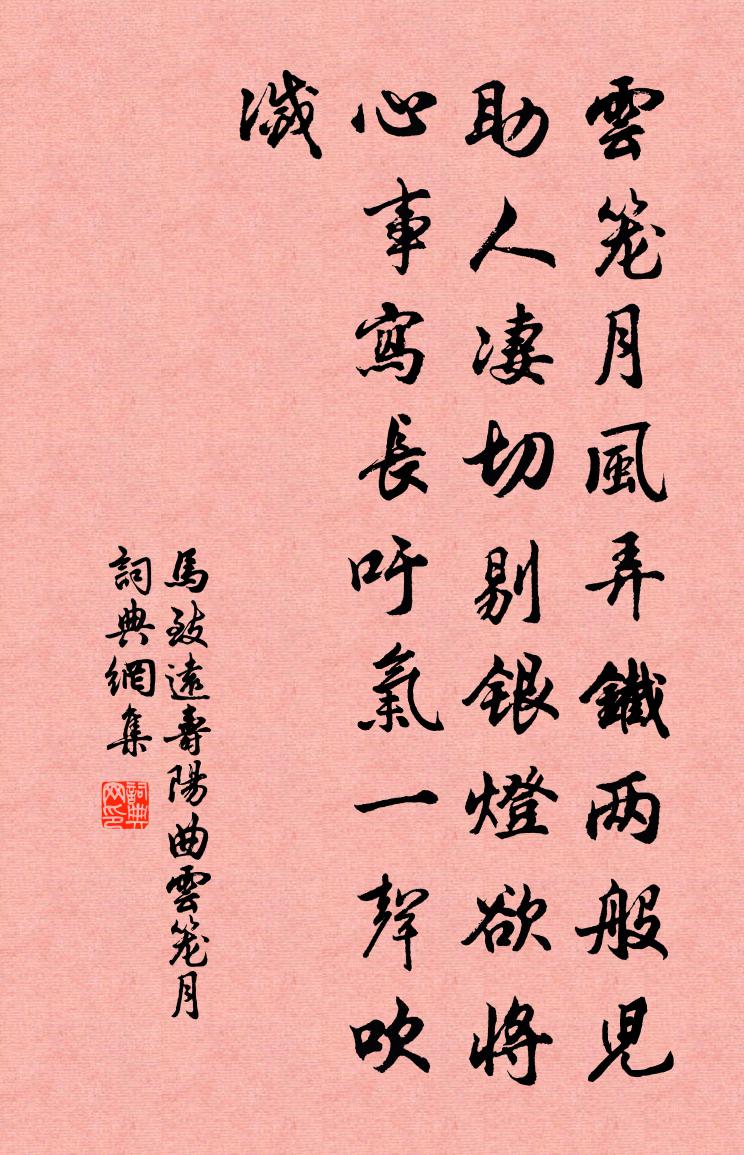 雲笼月風弄鐵两般兒
助人凄切剔銀燈欲將
心事寫長吁氣一聲吹
滅
馬致遠壽陽曲雲笼月
詞典網集
詞典网印